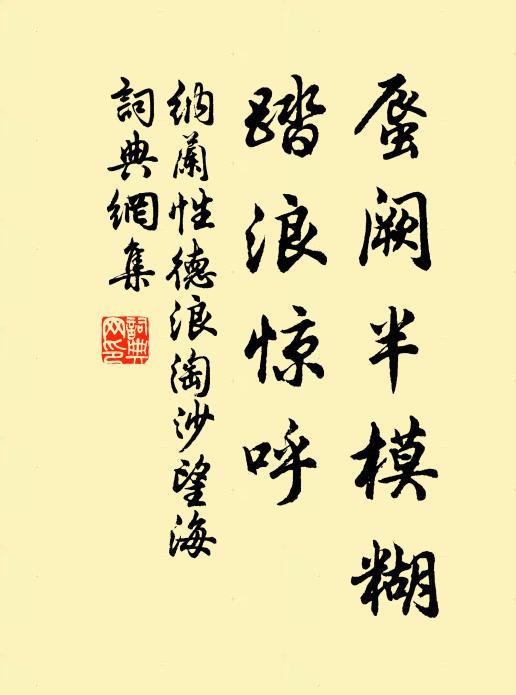 蜃阙半模糊
踏浪惊呼
纳兰性德浪淘沙望海
词典网集
詞典网印